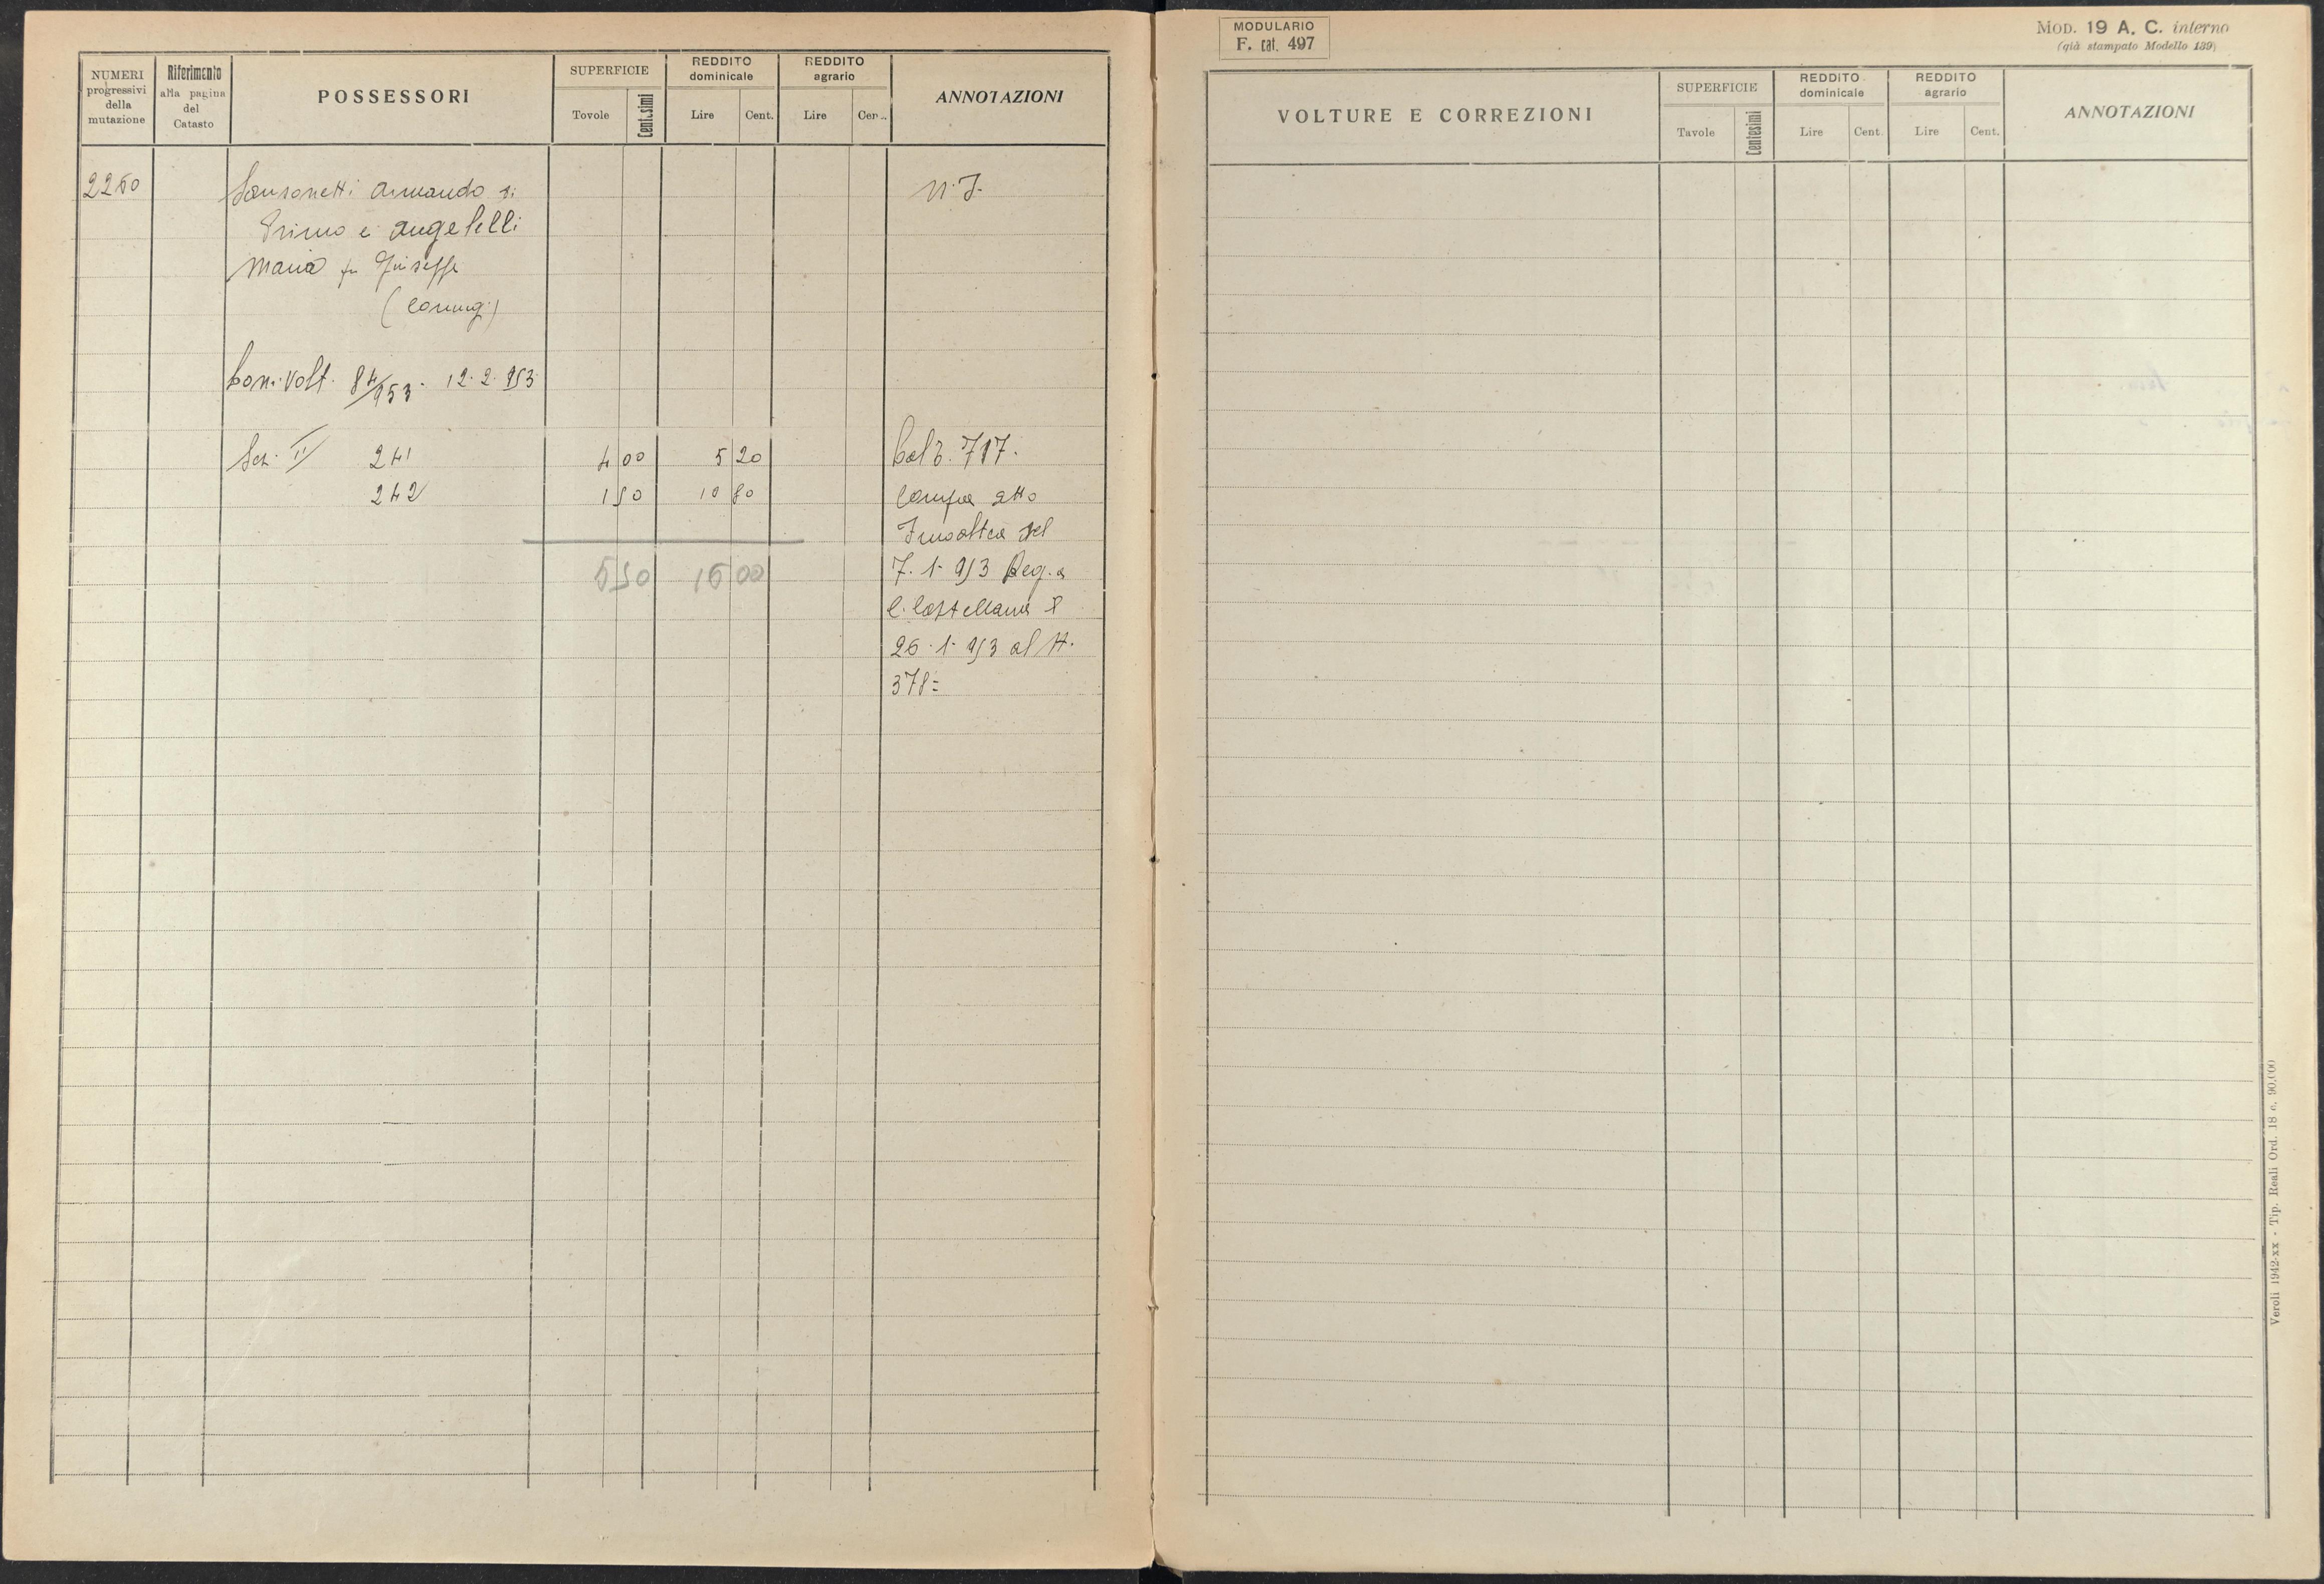 NUMERI progressivi della mutazione
Riferimento alla pagina del Catasto
POSSESSORI
SUPERFICIE
Tovole
Centesimi
REDDITO dominicale
Lire
Cent.
REDDITO agrario
Lire
Cen
ANNOTAZIONI
2260
Sansonetti Armando di
Primo e Angelelli
Maria fu Giuseppe
(coniugi)
N. I.
Com. Volt. 84/953. 12.2.953
Sez. II 241 4 00 5 20 Col 3. 717.
242 1 50 10 80 Compra atto
5 50 16 00
del
7.1.953 Reg. a
C. Castellana il
26.1.953 al N.
378=
MODULARIO
F. cat. 497
MOD. 19 A. C. interno
(già stampato Modello 139)
VOLTURE E CORREZIONI
SUPERFICIE
Tavole
Centesimi
REDDITO dominicale
Lire
Cent.
REDDITO agrario
Lire
Cent.
ANNOTAZIONI
Veroli 1942-XX - Tip. Reali Ord. 18 c. 90.000